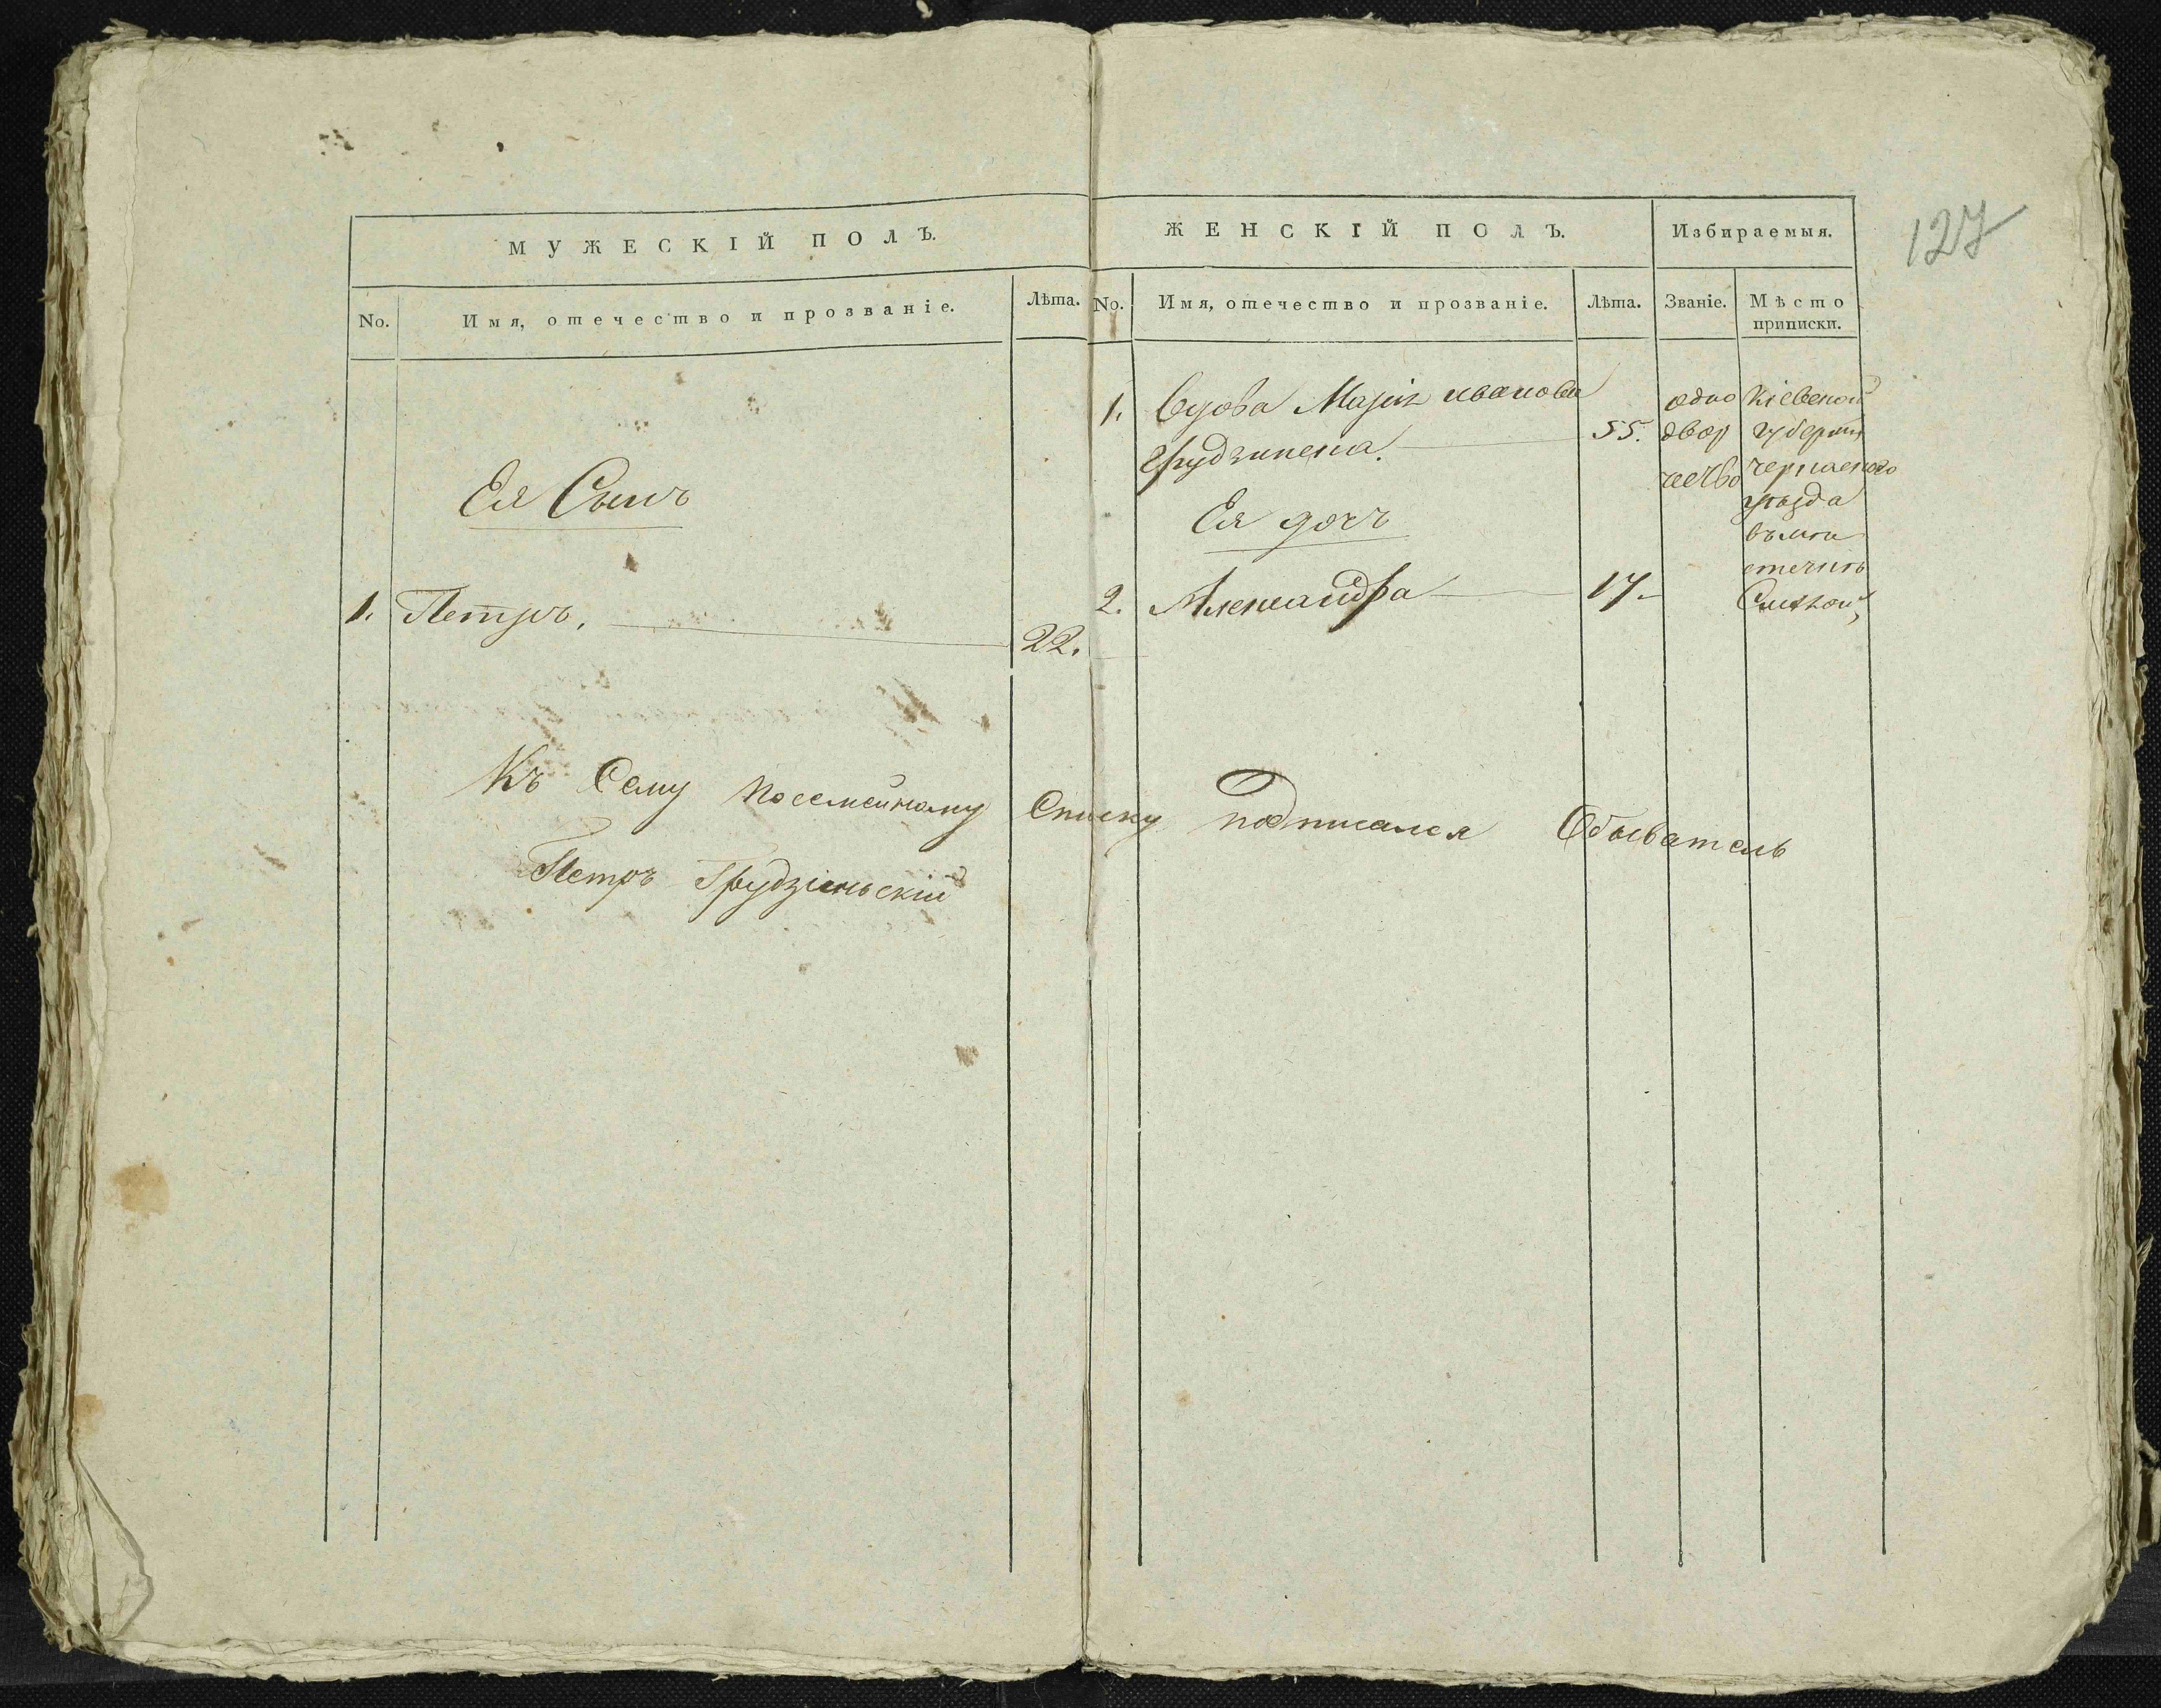 127
МУЖЕСКІЙ ПОЛЪ.
No. Имя, отечество и прозваніе. Лѣта.
Ея Сынъ
1. Петръ. 22.
ЖЕНСКІЙ ПОЛЪ. Избираемыя.
No. Имя, отечество и прозваніе. Лѣта. Званіе. Мѣсто
приписки.
1. Вдова Марія Ивановa
Грудзинска. 55.
Ея дочь
2. Александра 17.
одно
двор
чество
Кіевской
губерніи
Черкаского
уѣзда
въ мѣ
стечкѣ
Смѣлой
Къ Сему посемейному Списку подписался Обыватель
Петръ Грудзиньскій